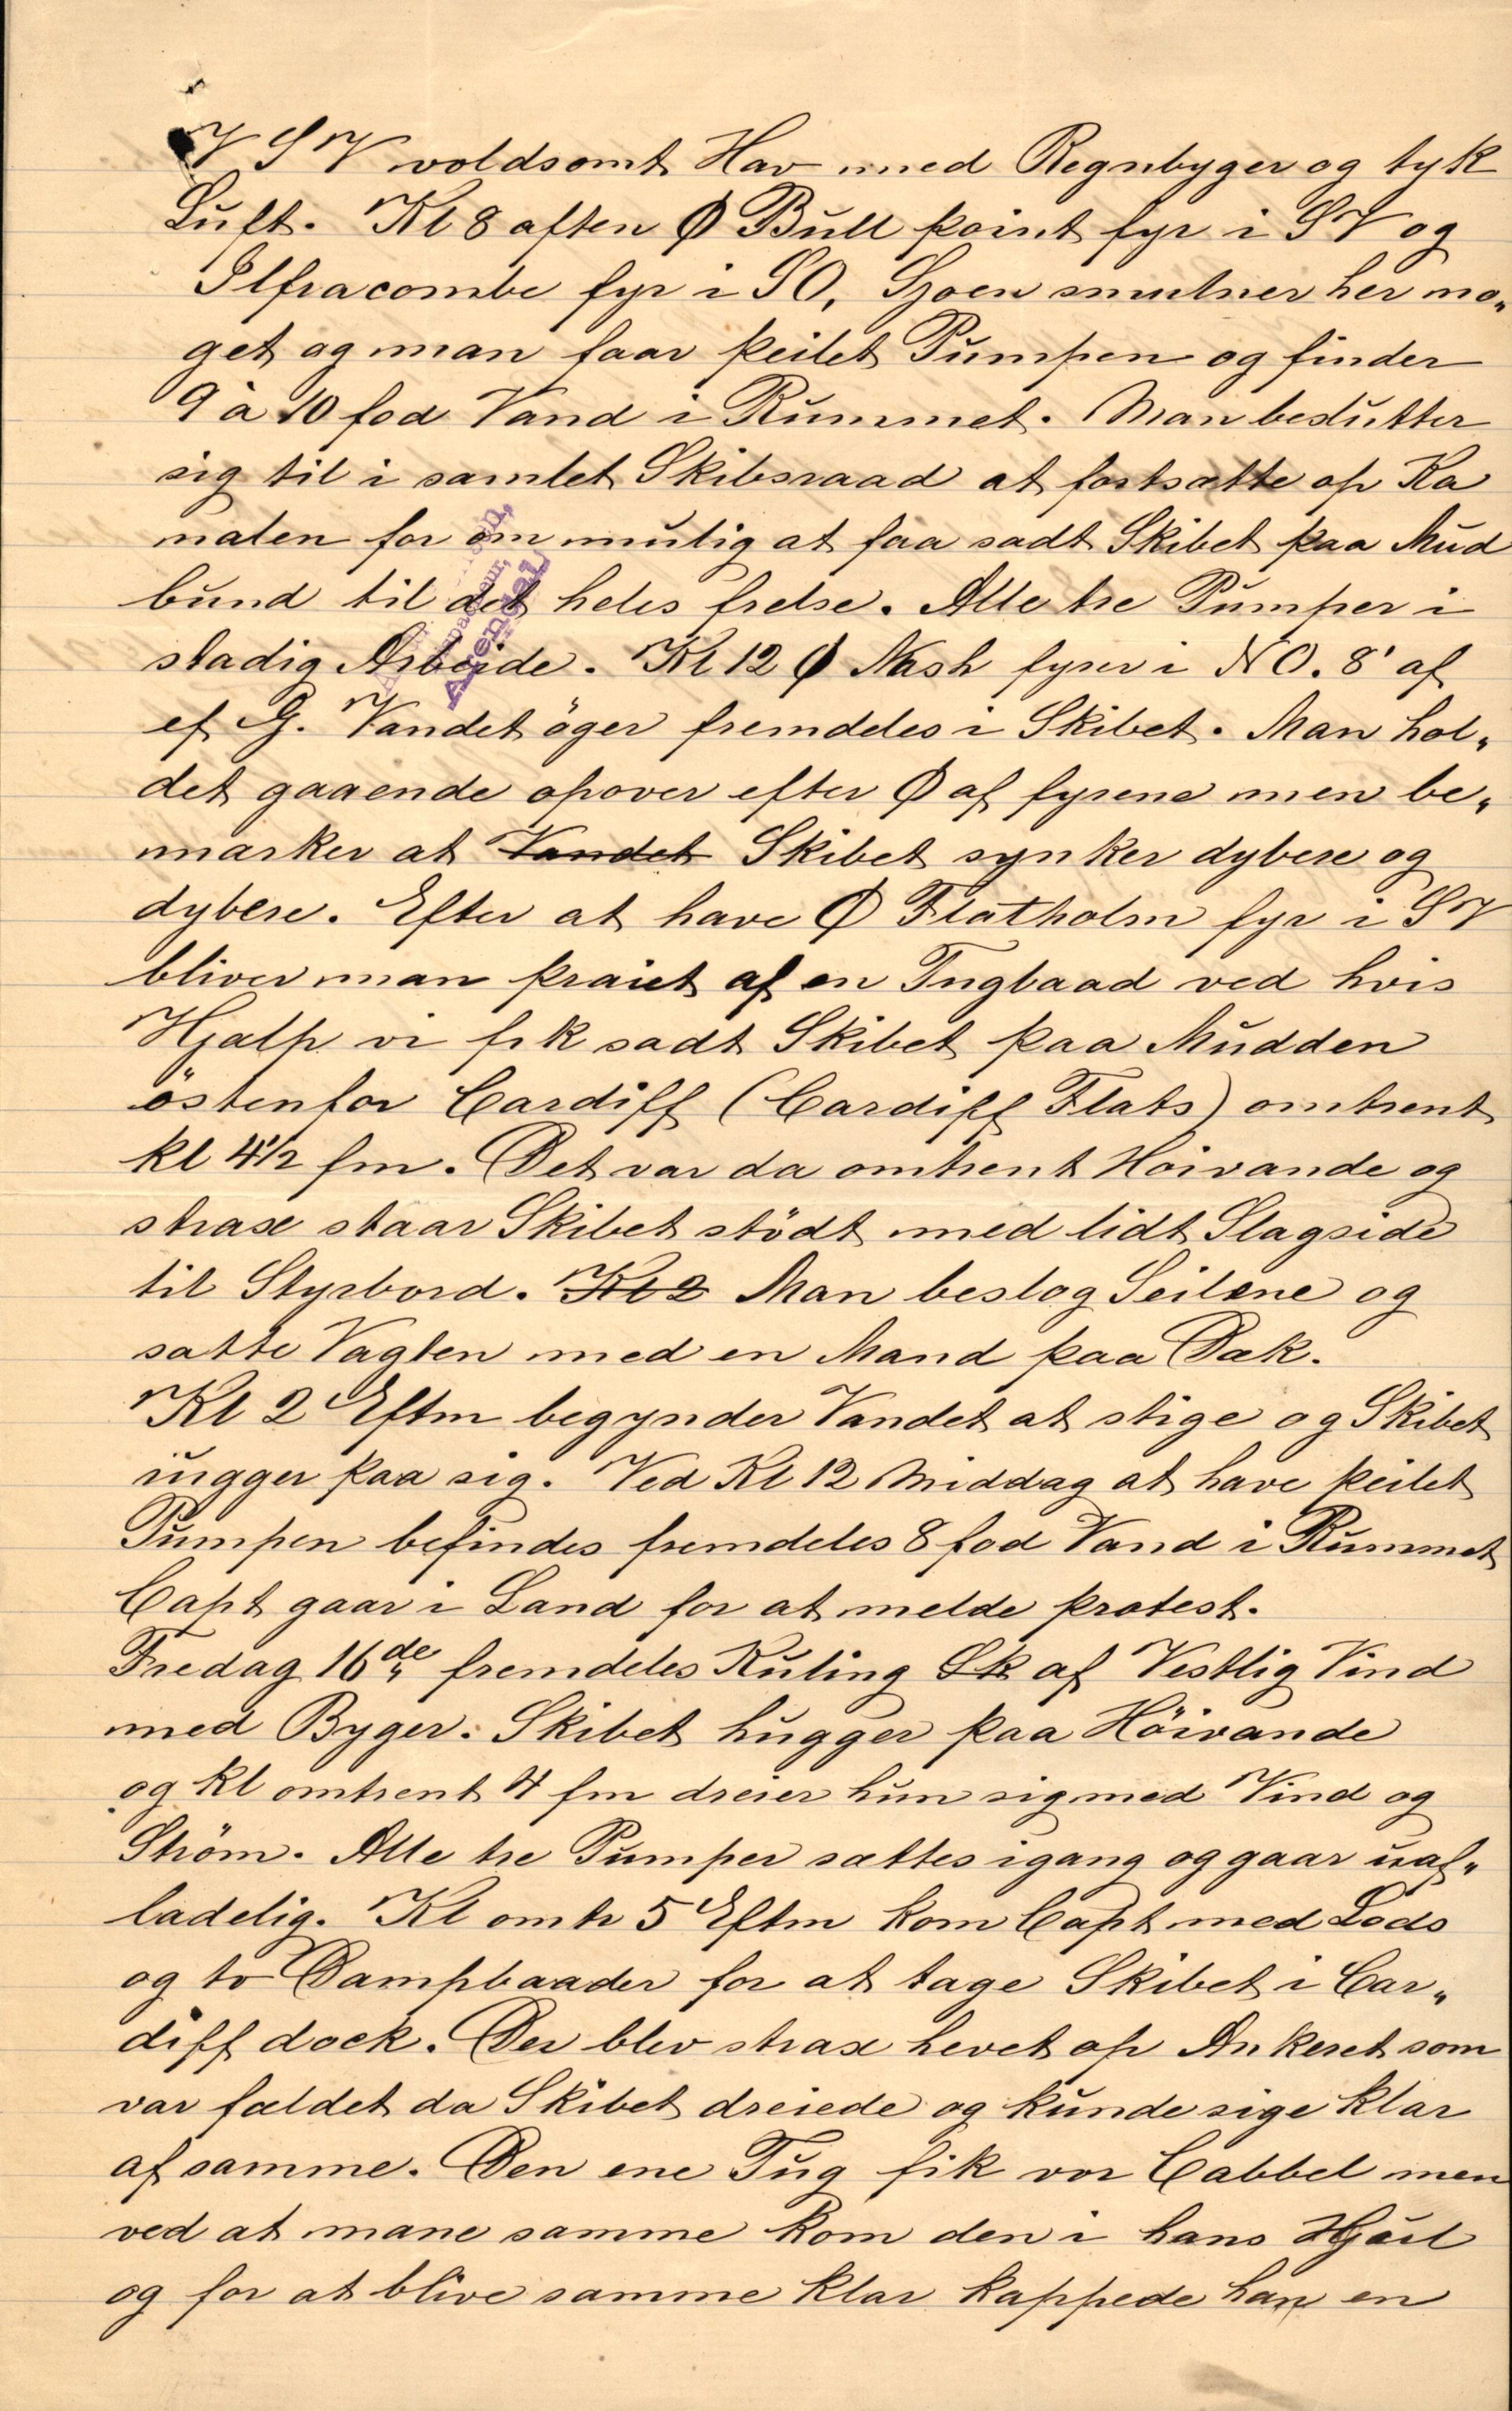 V S V voldsomt Hav med Regnbyger og tyk
Luft. Kl 8 aften Φ Bull point fyr i SV og
Ilfracombe fyr i SO, Sjoen smulner her no„
get og man faar peilet Pumpen og finder
9 à 10 fod Vand i Rummet. Man beslutter
sig til i samlet Skibsraad at fortsætte op Ka
nalen for om mulig at faa sadt Skibet paa Mud
bund til det heles frelse. Alle tre Pumper i
stadig Arbeide. Kl 12 Φ Nash fyrer i NO. 8' af
ef G. Vandet öger fremdeles i Skibet. Man hol„
det gaaende opover efter Φ af fyrene men be„
mærker at Vandet Skibet synker dybere og
dybere. Efter at have Φ Flatholm fyr i SV
bliver man praiet af en Tugbaad ved hvis
Hjælp vi fik sadt Skibet paa Mudden
östenfor Cardiff (Cardiff Flats) omtrent
kl 4½ fm. Det var da omtrent Höivande og
strax staar Skibet stödt med lidt Slagside
til Styrbord. Kl 2 Man beslog Seilene og
satte Vagten med en Mand paa Dæk.
Kl 2 Eftm begynder Vandet at stige og Skibet
ugger paa sig. Ved Kl 12 Middag at have peilet
Pumpen befindes fremdeles 8 fod Vand i Rummet
Capt gaar i Land for at melde protest.
Fredag 16de fremdeles Kuling Sk af Vestlig Vind
med Byger. Skibet hugger paa Höivande
og kl omtrent 4 fm dreier hun sig med Vind og
Ström. Alle tre Pumper sættes igang og gaar uaf„
ladelig. Kl omtr 5 Eftm kom Capt med Lods
og to Dampbaader for at tage Skibet i Car„
diff dock. Der blev strax hevet op Ankeret som
var fældet da Skibet dreiede og kunde sige klar
af samme. Den ene Tug fik vor Cabbel men
ved at mane samme kom den i hans Hjul
og for at blive samme klar kappede han en
Arendal